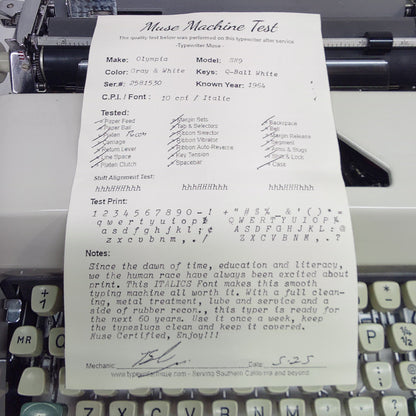 Muse Machine Test
The quality test below was performed on this typewriter after service
-Typewriter Muse-
Make: Olympia Model: SM9
Color: Gray & White Keys: Q-Ball White
Ser.#: 2581530 Known Year: 1964
C.P.I./Font: 10 cpi / Italic
Tested:
Paper Feed Margin Sets Backspace
Paper Bail Tab & Selectors Bell
Platen Ribbon Selector Margin Release
Carriage Ribbon Vibrator Segment
Return Lever Ribbon Auto-Reverse Arms & Slugs
Line Space Key Tension Shift & Lock
Platen Clutch Spacebar Case
Shift Alignment Test:
hhhHHHhhh hhhHHHhhh hhhHHHhhh
Test Print:
1 2 3 4 5 6 7 8 9 0 - ! + " # $ % _ & ' ( ) * =
q w e r t y u i o p Q W E R T Y U I O P
a s d f g h j k l ; ¢ A S D F G H J K L : @
z x c v b n m , . / Z X C V B N M , . ?
Notes:
Since the dawn of time, education and literacy,
we the human race have always been excited about
print. This ITALICS Font makes this smooth
typing machine all worth it. With a full clean-
ing, metal treatment, lube and service and a
side of rubber recon., this typer is ready for
the next 60 years. Use it once a week, keep
the typeslugs clean and keep it covered.
Muse Certified, Enjoy!!!
Mechanic Date 5-25
www.typewritermuse.com - Serving Southern California and beyond.
+
1
MR
Q
A
Z X C V B N M